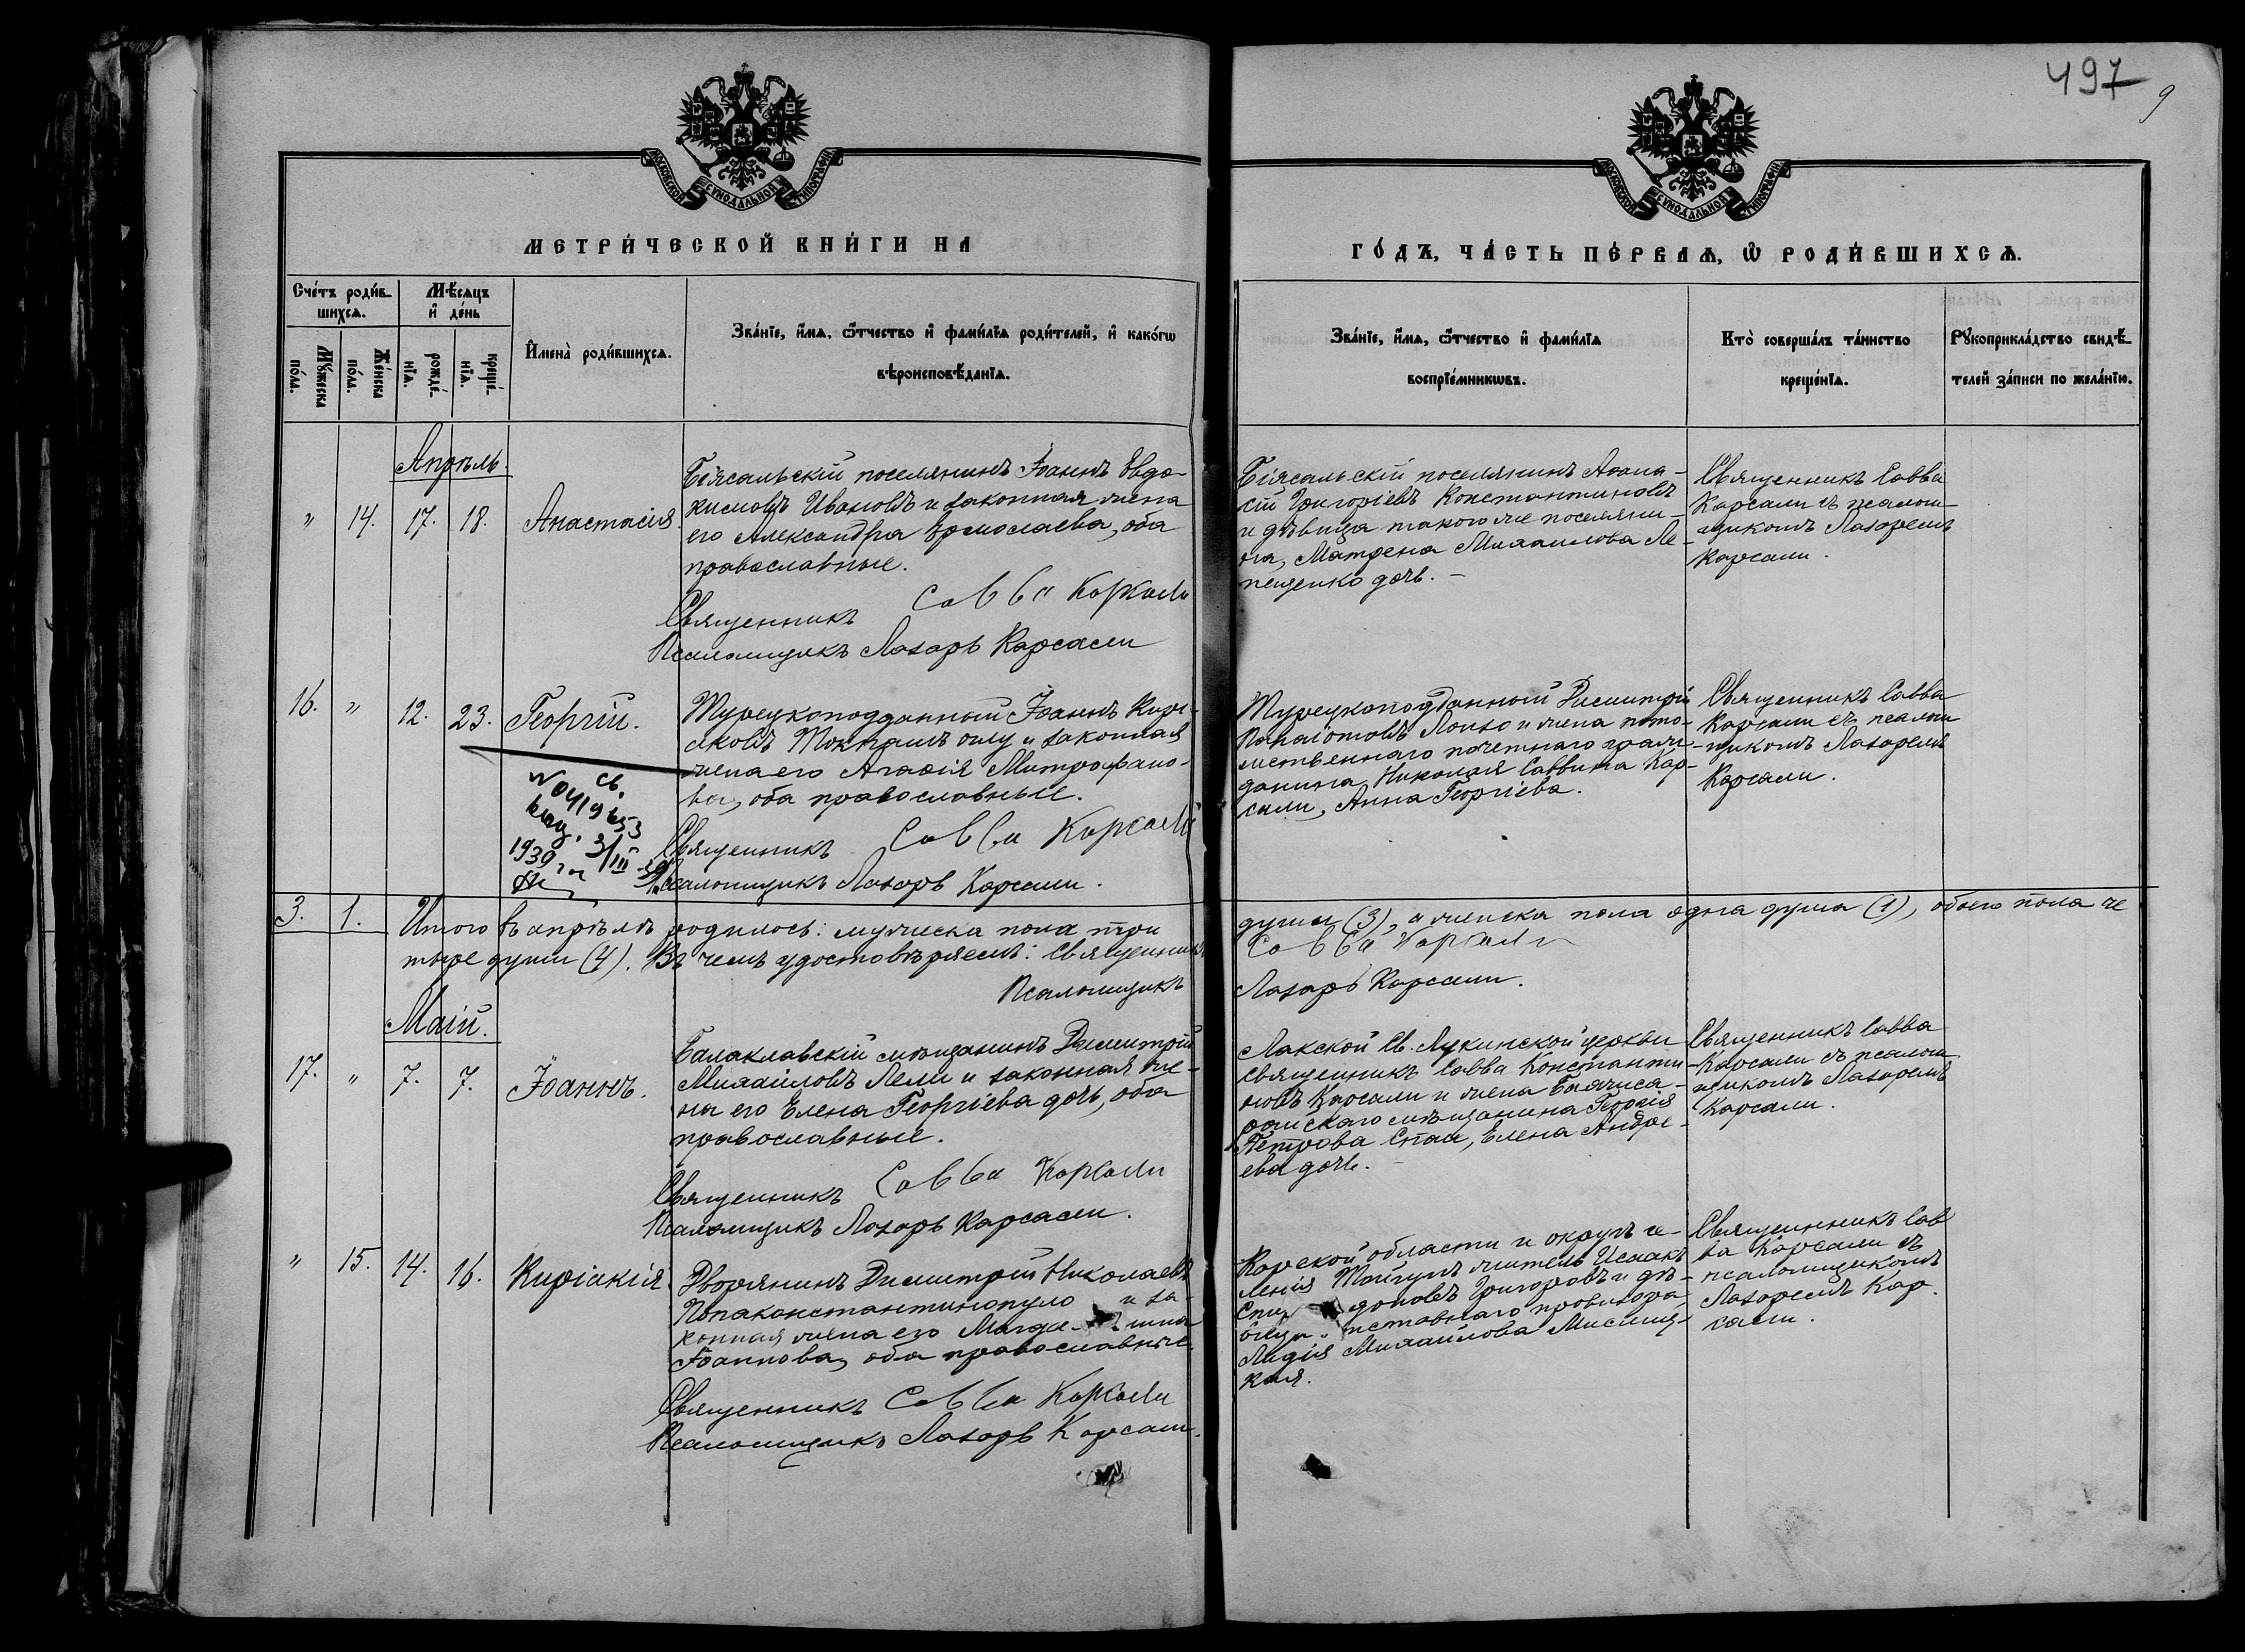 497
9
МОСКОВСКОЙ СѴНОДАЛЬНОЙ ТИПОГРАФІИ
МОСКОВСКОЙ СѴНОДАЛЬНОЙ ТИПОГРАФІИ
МЕТРИ́ЧЕСКОЙ КНИ́ГИ НА
ГО́ДЪ, ЧА́СТЬ ПЕ́РВАѦ, Ѡ РОДИ́ВШИХСѦ.
Сче́тъ роди́в-
шихсѧ.
Мѣ́сѧцъ
и҆ де́нь
Мꙋ́жеска
по́ла.
Же́нска
по́ла.
рожде́-
нїѧ.
креще́-
нїѧ.
И҆мена̀ роди́вшихсѧ.
Зва́нїе, и҆́мѧ, ѻ҆́тчество и҆ фами́лїѧ роди́телей, и҆ како́гѡ
вѣроисповѣ́данїѧ.
Зва́нїе, и҆́мѧ, ѻ҆́тчество и҆ фами́лїѧ
воспрїе́мникѡвъ.
Кто̀ соверша́лъ та́инство
креще́нїѧ.
Рꙋкоприкла́дство свидѣ́-
телей за́писи по жела́нїю.
Апрѣль.
" 14. 17. 18. Анастасія
Біясальскій поселянинъ Іоаннъ Евдо-
кимовъ Ивановъ и законная жена
его Александра Ермолаева, оба
православные.
Священникъ Савва Карсали
Псаломщикъ Лазарь Карсали
Біясальскій поселянинъ Аѳана-
сій Григоріевъ Константиновъ
и дѣвица такого же поселяни-
на, Матрена Михаилова Ле-
пещенко дочь. -
Священникъ Савва
Карсали съ псалом-
щикомъ Лазаремъ
Карсали.
16. " 12. 23. Георгій.
Турецкоподданный Іоаннъ Кирі-
аковъ Токтамъ оглу и законная
жена его Агаѳія Митрофано-
ва, оба православные.
Священникъ Савва Карсали
Псаломщикъ Лазарь Карсали.
св.
1939 г. 3/III
Турецкоподданный Димитрій
Панаіотовъ Лонзо и жена пото-
мственнаго почетнаго граж-
данина Николая Саввича Кар-
сали, Анна Георгіева.
Священникъ Савва
Карсали съ псалом-
щикомъ Лазаремъ
Карсали.
3. 1. Итого въ апрѣлѣ родилось: мужеска пола три
души (3), а женска пола одна душа (1), обоего пола че
тыре души (4). Въ чемъ удостовѣряемъ: Священникъ
Савва Карсали
Псаломщикъ
Лазарь Карсали.
Маій.
17. " 7. 7. Іоаннъ.
Балаклавскій мѣщанинъ Димитрій
Михаиловъ Лели и законная же-
на его Елена Георгіева дочь, оба
православные.
Священникъ Савва Карсали
Псаломщикъ Лазарь Карсали.
Лакской Св. Лукинской церкви
священникъ Савва Константи-
новъ Карсали и жена Бахчиса-
райскаго мѣщанина Георгія
Петрова Спаи, Елена Андре-
ева дочь. -
Священникъ Савва
Карсали съ псалом-
щикомъ Лазаремъ
Карсали.
" 15. 14. 16. Киріакія
Дворянинъ Димитрій Николаевъ
Папаконстантинопуло и за-
конная жена его Магда-
Іоаннова, оба православные.
Священникъ Савва Карсали
Псаломщикъ Лазарь Карсали.
Карской области и округа се-
ленія житель Исаакъ
Спи доновъ Григоровъ и дѣ-
вица провизора
Лидія Михаилова
кая.
Священникъ Сав
ва Карсали съ
псаломщикомъ
Лазаремъ Кар.
сали.